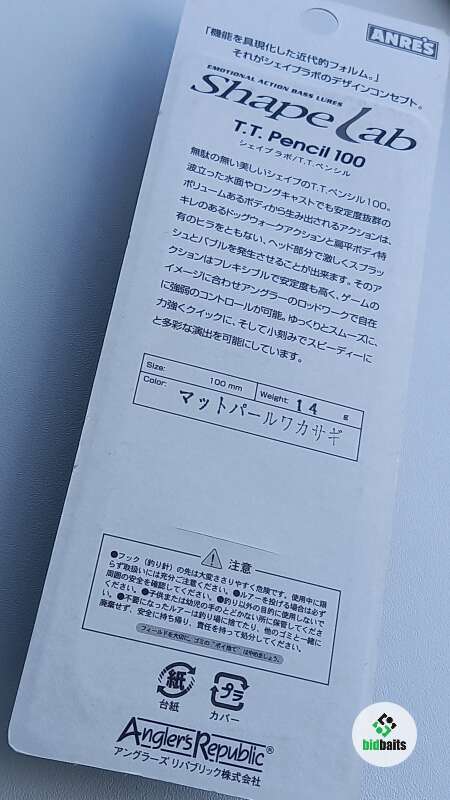 ANRE'S
「機能を具現化した近代的フォルム。」
それがシェイプラボのデザインコンセプト。
EMOTIONAL ACTION BASS LURES
Shape Lab
T.T. Pencil 100
シェイプラボ/T.T.ペンシル
無駄の無い美しいシェイプのT.T.ペンシル100。
波立った水面やロングキャストでも安定度抜群の
ボリュームあるボディから生み出されるアクションは、
キレのあるドッグウォークアクションと扁平ボディ特
有のヒラをともない、ヘッド部分で激しくスプラッ
シュとバブルを発生させることが出来ます。そのア
クションはフレキシブルで安定度も高く、ゲームの
イメージに合わせアングラーのロッドワークで自在
に強弱のコントロールが可能。ゆっくりとスムーズに、
力強くクイックに、そして小刻みでスピーディーに
と多彩な演出を可能にしています。
Size: 100 mm Weight: 14 g
Color: マットパールワカサギ
注意
●フック(釣り針)の先は大変ささりやすく危険です。使用中に限
らず取扱いには充分ご注意ください。●ルアーを投げる場合は必ず
周囲の安全を確認してください。●釣り以外の目的に使用しないで
ください。●子供または幼児の手のとどかない所に保管してくださ
い。●不要になったルアーは釣り場に捨てたり、他のゴミと一緒に
廃棄せず、安全に持ち帰り、責任を持って処分してください。
フィールドを大切に、ゴミの"ポイ捨て"はやめましょう。
紙 プラ
台紙 カバー
Angler's Republic®
アングラーズ リパブリック株式会社
bidbaits